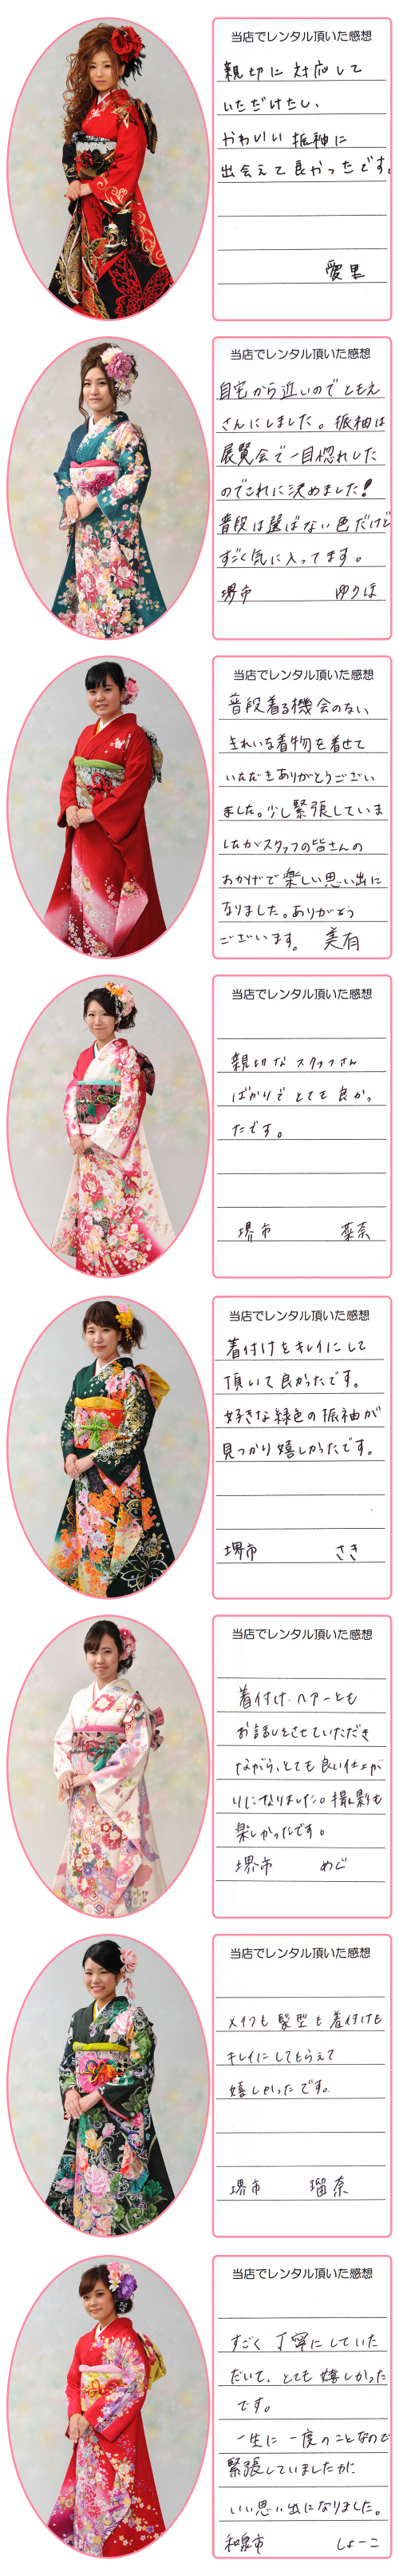 当店でレンタル頂いた感想
親切に対応して
いただけたし、
かわいい振袖に
出会えて良かったです。
愛里
当店でレンタル頂いた感想
自宅から近いのでともえ
さんにしました。振袖は
展覧会で一目惚れした
のでこれに決めました!
普段は選ばない色だけど
すごく気に入ってます。
堺市 ゆりほ
当店でレンタル頂いた感想
普段着る機会のない
きれいな着物を着せて
いただきありがとうござい
ました。少し緊張していま
したがスタッフの皆さんの
おかげで楽しい思い出に
なりました。ありがとう
ございます。 美有
当店でレンタル頂いた感想
親切なスタッフさん
ばかりでとても良かっ
たです。
堺市 菜奈
当店でレンタル頂いた感想
着付けをキレイにして
頂いて良かったです。
好きな緑色の振袖が
見つかり嬉しかったです。
堺市 さき
当店でレンタル頂いた感想
着付け・ヘアーとも
お話しをさせていただき
ながら、とても良い仕上が
りになりました。撮影も
楽しかったです。
堺市 めぐ
当店でレンタル頂いた感想
メイクも髪型も着付けも
キレイにしてもらえて
嬉しかったです。
堺市 瑠奈
当店でレンタル頂いた感想
すごく丁寧にしていた
だいて、とても嬉しかった
です。
一生に一度のことなので
緊張していましたが
いい思い出になりました。
和泉市 しょーこ